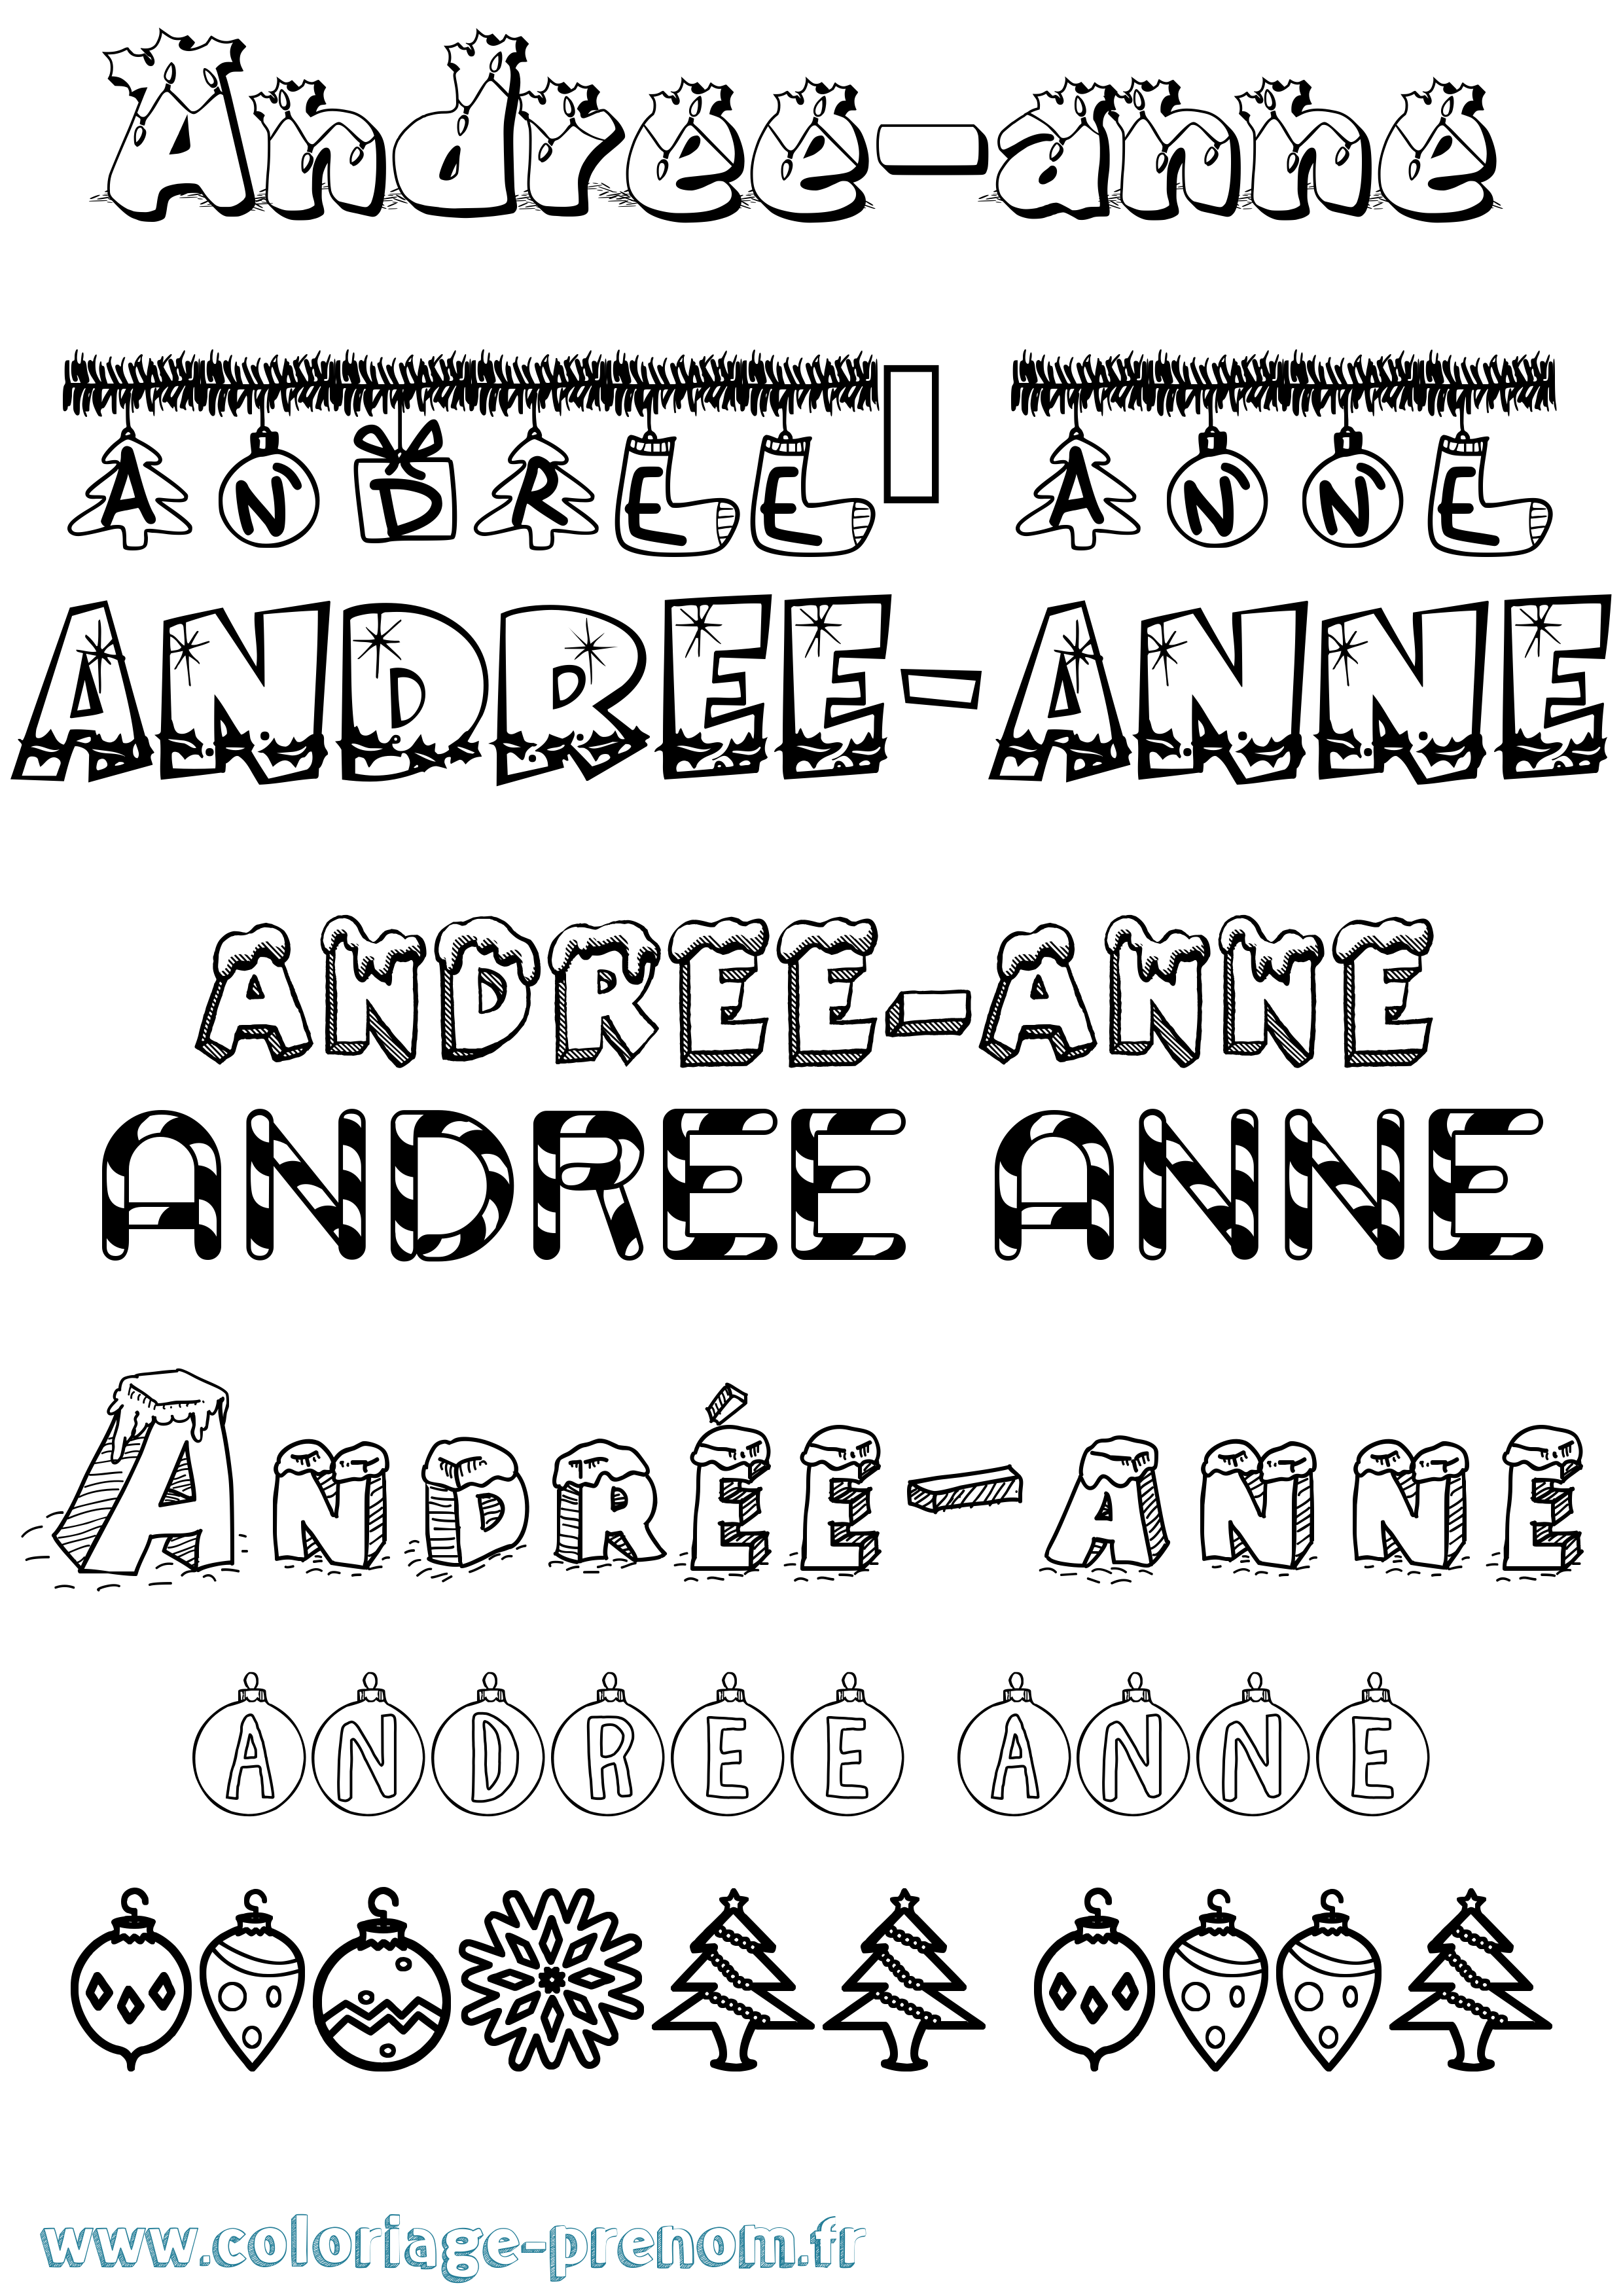 Andree-anne
ANDREE ANNE
ANDREE-ANNE
ANDREE-ANNE
ANDREE ANNE
ANDRÉE-ANNE
ANDREE ANNE
www.coloriage-prenom.fr